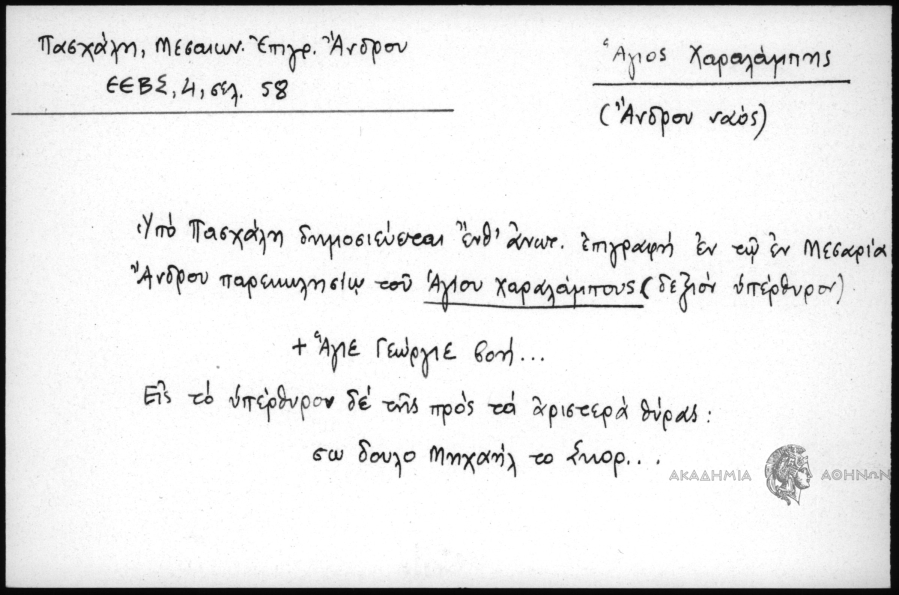 Πασχάλη, Μεσαιων. Ἐπιγρ. Ἄνδρου
ΕΕΒΣ, 4, σελ. 58
Ἅγιος Χαραλάμπης
(Ἄνδρου ναός)
Ὑπό Πασχάλη δημοσιεύεται ἔνθ' ἀνωτ. ἐπιγραφή ἐν τῷ ἐν Μεσαρία
Ἄνδρου παρεκκλησίῳ τοῦ Ἁγίου Χαραλάμπους (δεξιόν ὑπέρθυρον)
+ Ἅγιε Γεώργιε βοή...
Εἰς τό ὑπέρθυρον δέ τῆς πρός τά ἀριστερά θύρας:
σω δουλο Μηχαήλ το Σκορ...
ΑΚΑΔΗΜΙΑ ΑΘΗΝΩΝ